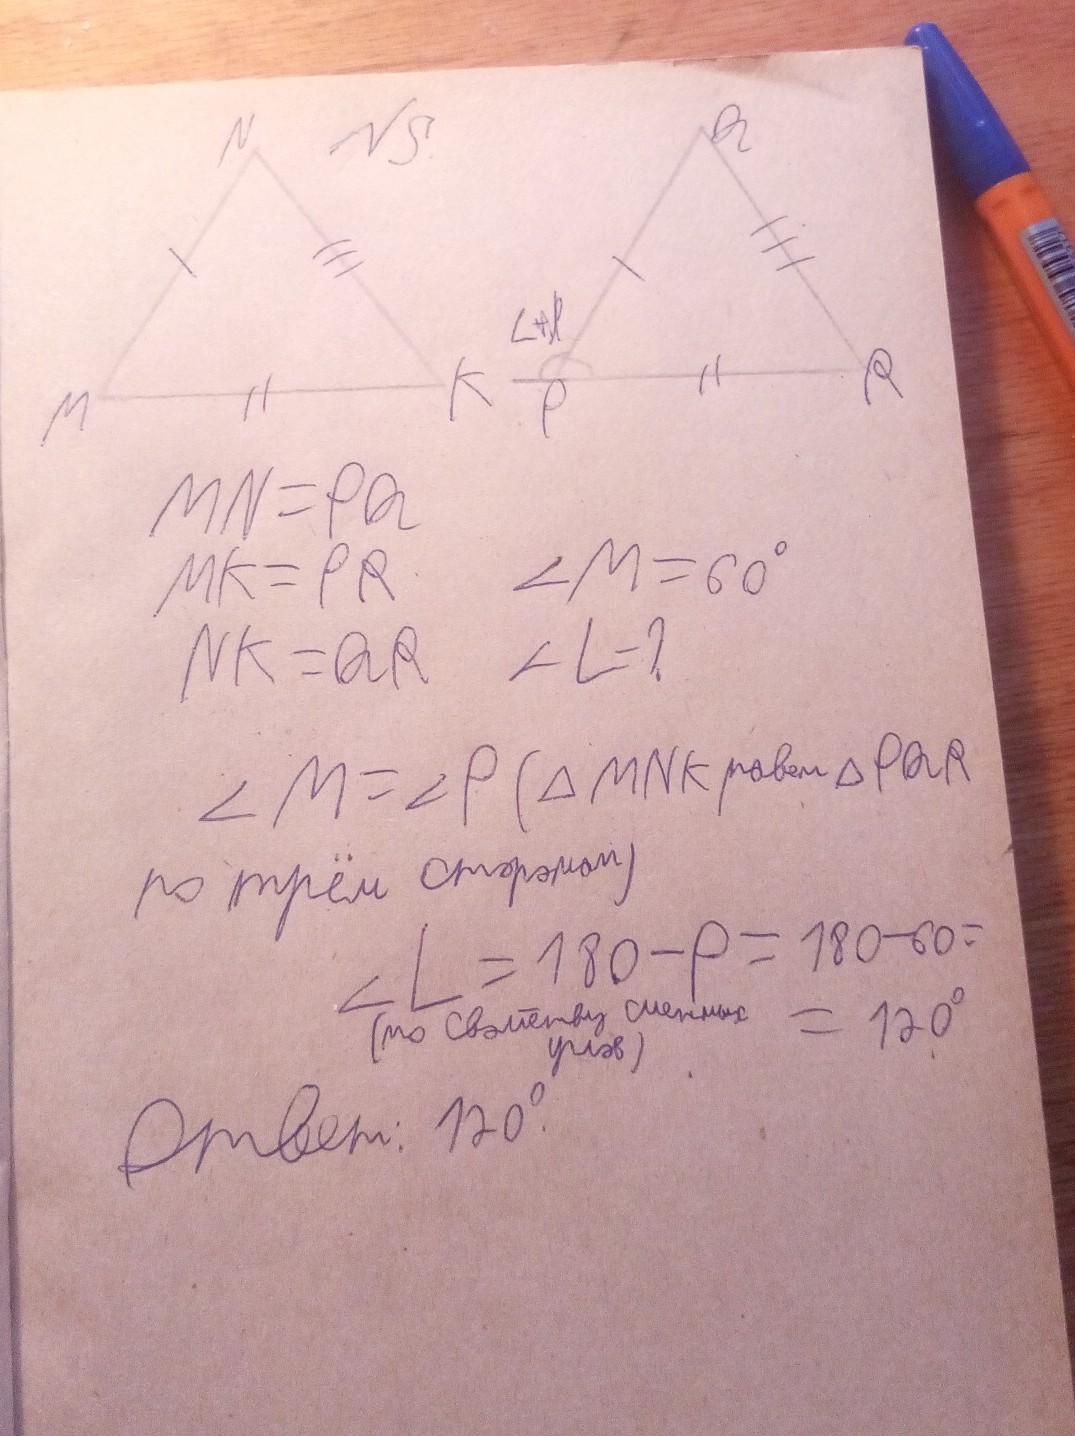 N
N5.
Q
M
K
P
R
MN=PQ
MK=PR
∠M=60°
NK=QR
∠L=?
∠M=∠P(△MNK равен △PQR
по трём сторонам)
∠L=180-P=180-60=
(по свойству смежных
углов)
=120°
Ответ: 120°.